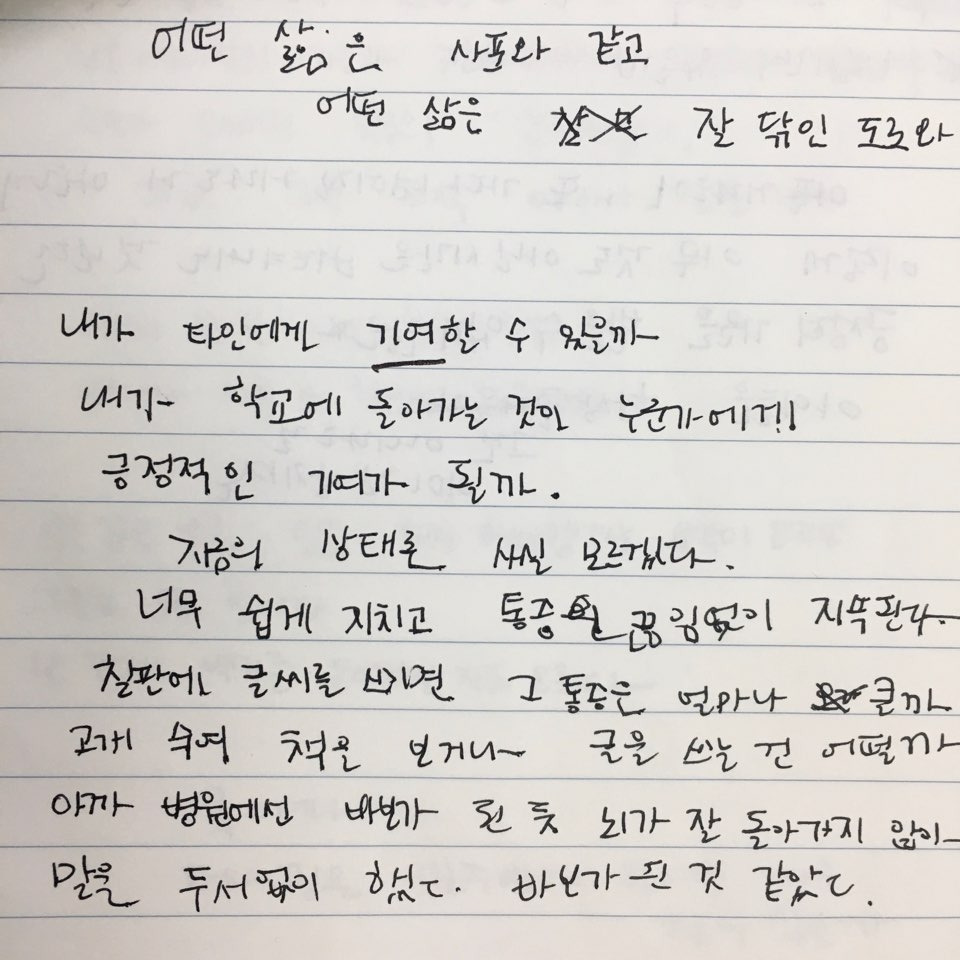 어떤 삶은 사포와 같고
어떤 삶은 잘 닦인 도로와
내가 타인에게 기여할 수 있을까
내가 학교에 돌아가는 것이 누군가에게
긍정적인 기여가 될까.
지금의 상태론 사실 모르겠다.
너무 쉽게 지치고 통증은 끊임없이 지뚝핀다
칠판에 글씨를 쓰면 그 통증은 얼마나 클까
고개 숙여 책을 보거나 글을 쓰는 건 어떨까
아까 병원에선 바보가 된 듯 뇌가 잘 돌아가지 않아
말을 두서없이 했다. 바보가 된 것 같았다.